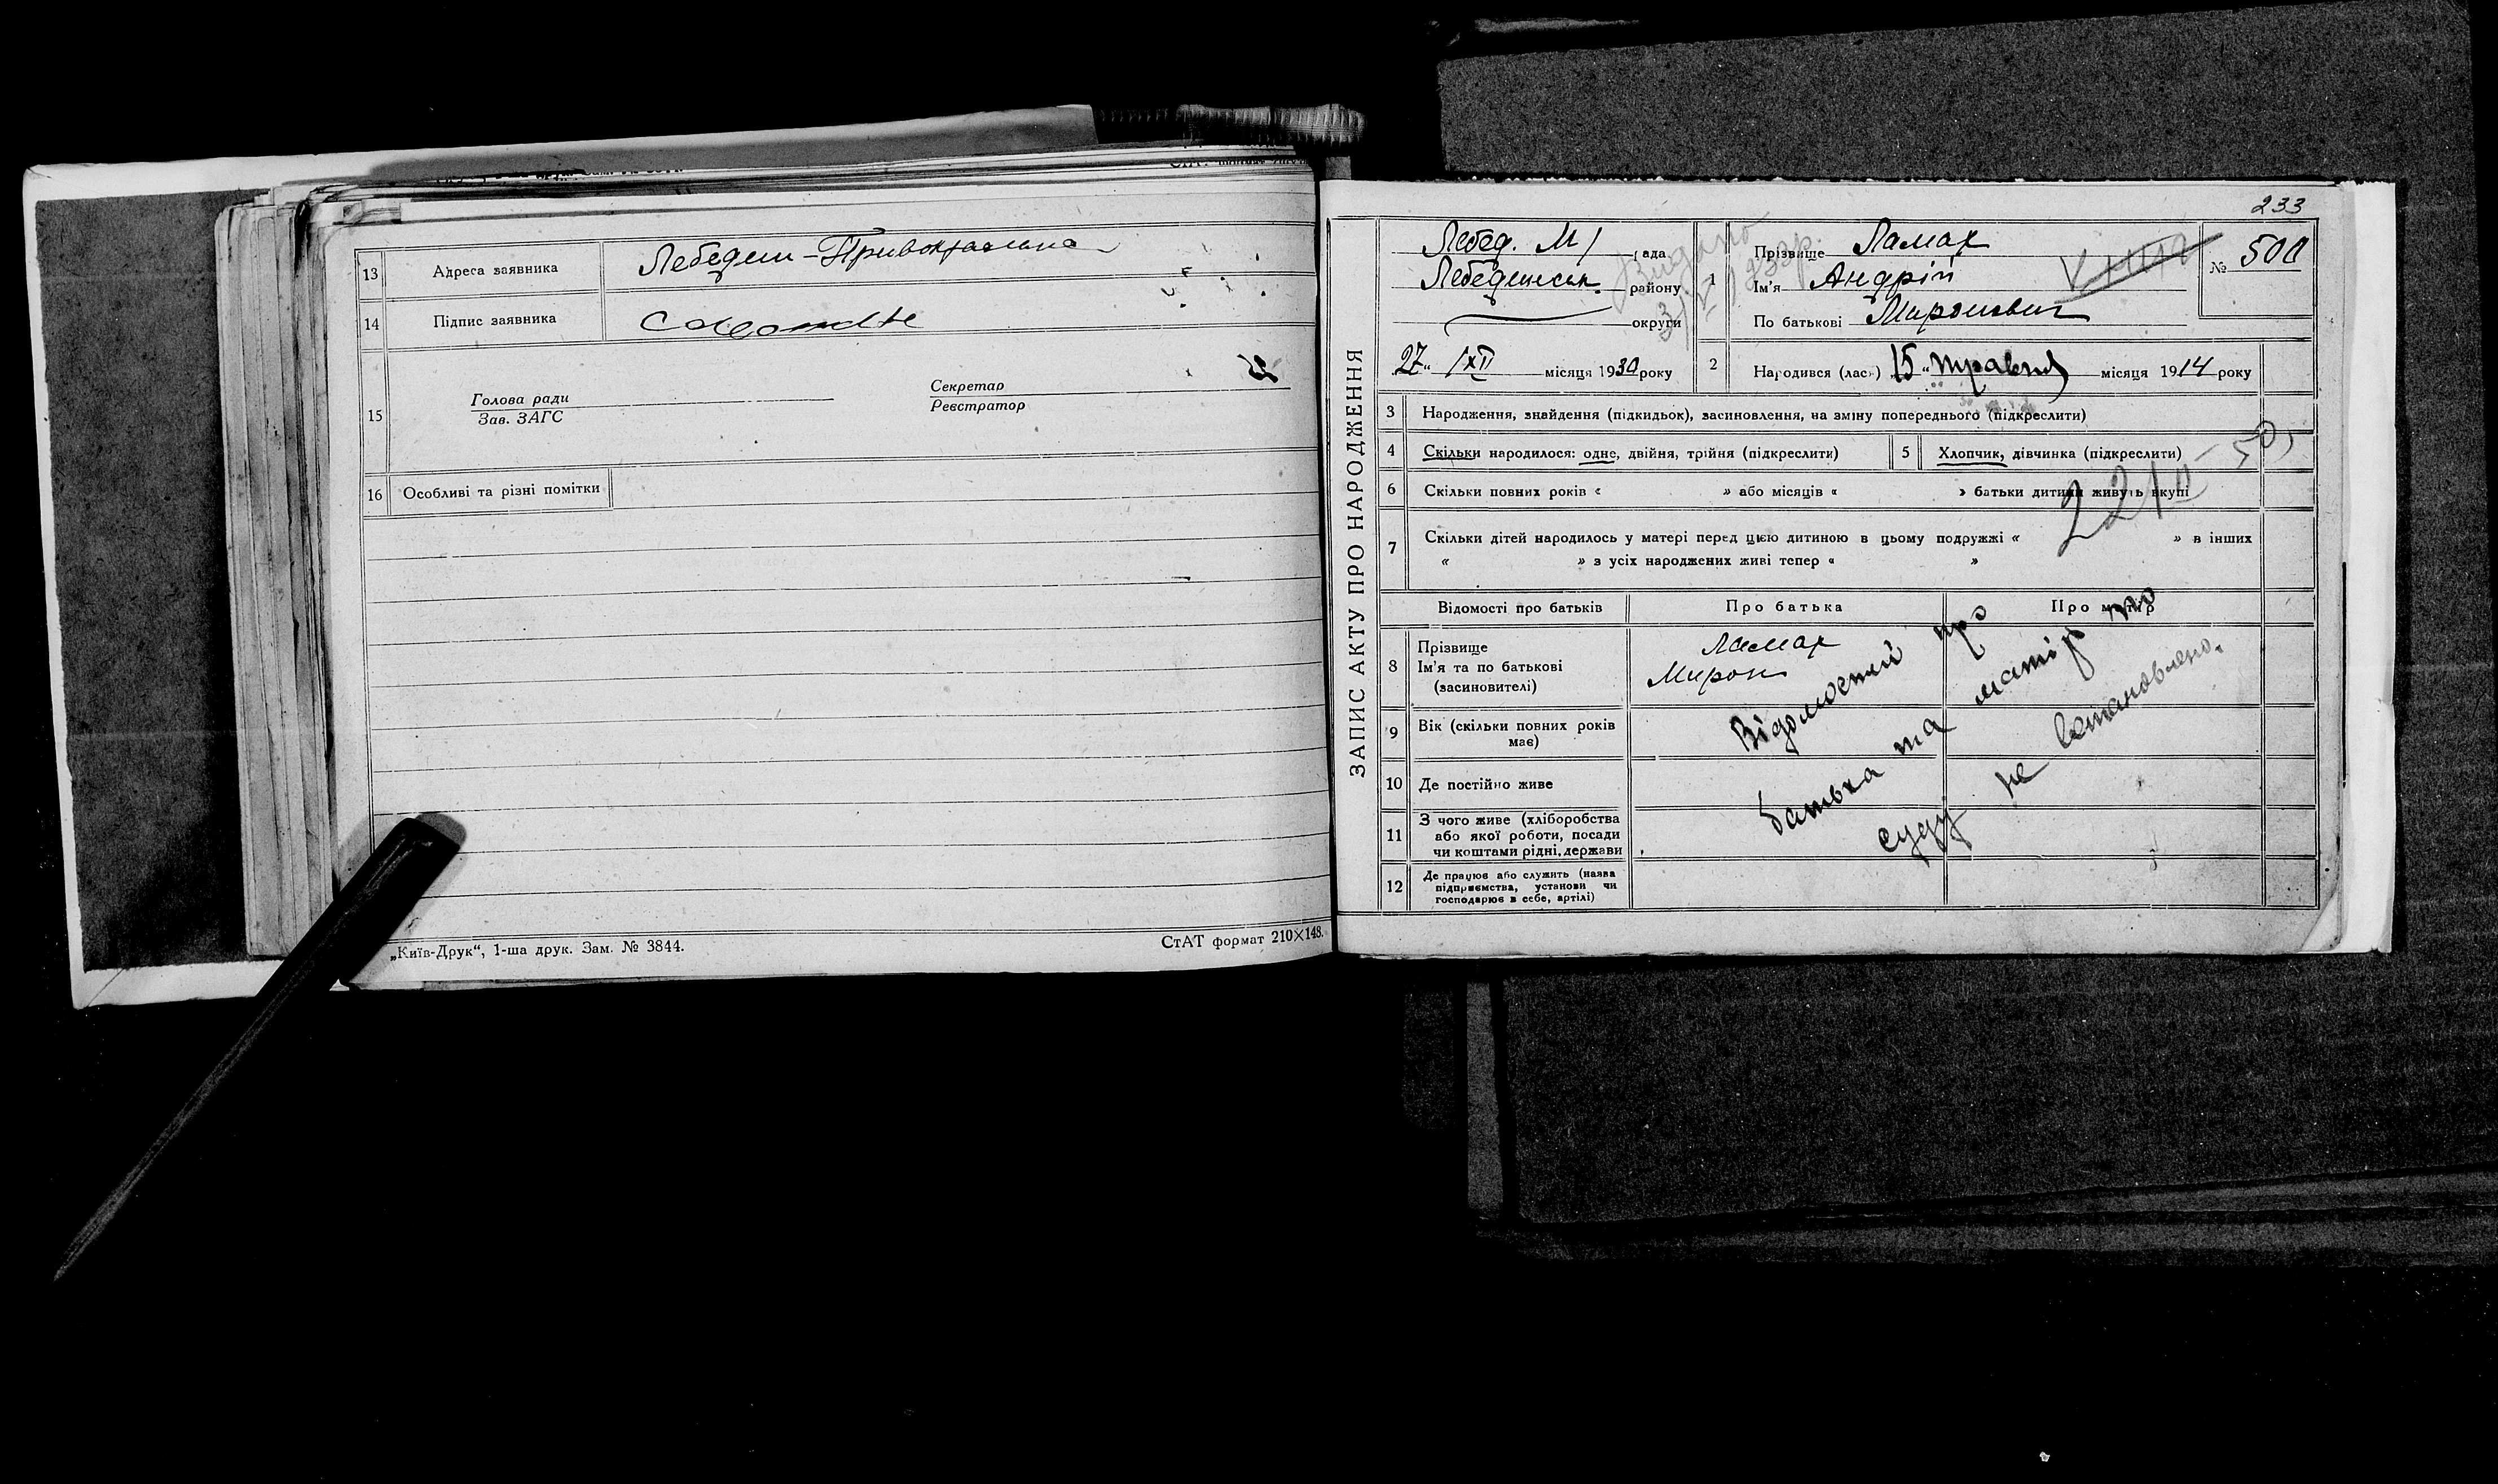 13 Адреса заявника Лебедин - Привокзальна
14 Підпис заявника
15 Голова ради
Зав. ЗАГС
Секретар
Реєстратор
16 Особливі та різні помітки
„Київ-Друк“, 1-ша друк. Зам. № 3844.
СтАТ формат 210×148.
233
ЗАПИС АКТУ ПРО НАРОДЖЕННЯ
Лебед. М/рада
Лебединськ. району
округи
27 " /XII місяця 1930 року
Видано
1 Прізвище Ламах
Ім'я Андрій
По батькові Миронович
№ 500
2 Народився (лась) 15 " травня місяця 1914 року
3 Народження, знайдення (підкидьок), засиновлення, на зміну попереднього (підкреслити)
4 Скільки народилося: одне, двійня, трійня (підкреслити)
5 Хлопчик, дівчинка (підкреслити)
6 Скільки повних років « » або місяців « » батьки дитини живуть вкупі
7 Скільки дітей народилось у матері перед цією дитиною в цьому подружжі « » в інших
« » з усіх народжених живі тепер « »
Відомості про батьків Про батька Про матір
8 Прізвище
Ім'я та по батькові
(засиновителі)
Ламах
Мирон
9 Вік (скільки повних років
має)
10 Де постійно живе
11 З чого живе (хліборобства
або якої роботи, посади
чи коштами рідні, держави
12 Де працює або служить (назва
підприємства, установи чи
господарює в себе, артілі)
Відомостей про
батька та матір по
суду не встановлено.